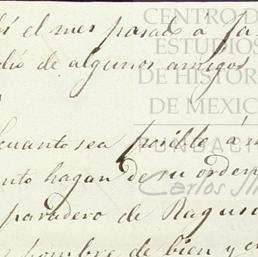 el mes pasado á
de algunos amigos
cuanto sea posible á
hagan de su orden
paradero de Ragus
nombre de bien y
CENTRO D
ESTUDIOS
DE HISTOR
DE MEXIC
FUNDACI
Carlos Sl